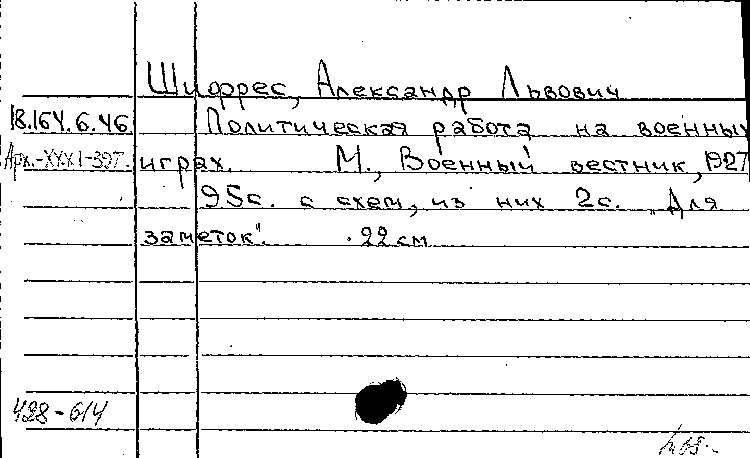 Шифрес, Александр Львович
18.164.6.46 Политическая работа на военных
Арх.-XXXI-397. играх. М., Военный вестник, 1927
95с. с схем, из них 2с. „Для
заметок". 22 см
428-614